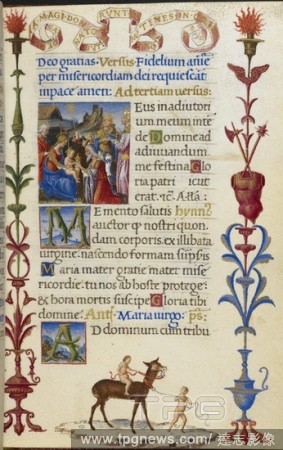 MAGI DO
Deo gratias. Versus. Fidelium anĩe
per misericordiam dei requiescāt
in pace amen: Ad tertiam versus:
Eus in adiutori
um meum inte
de Domine ad
adiuuandum
me festina Glo
ria patri sicut
erat. Añā:
Memento salutis hynnꝰ
auctor ꝙ nostri quon
dam corporis, ex illibata
uirgine, nascendo formam sũpsĩs
Maria mater gratie mater mise
ricordie: tu nos ab hoste protege:
& hora mortis suscipe Gloria tibi
domine. Ant. Maria uirgo. ps:
AD dominum cum tribu
TPG
www.tpgnews.com/達志影像